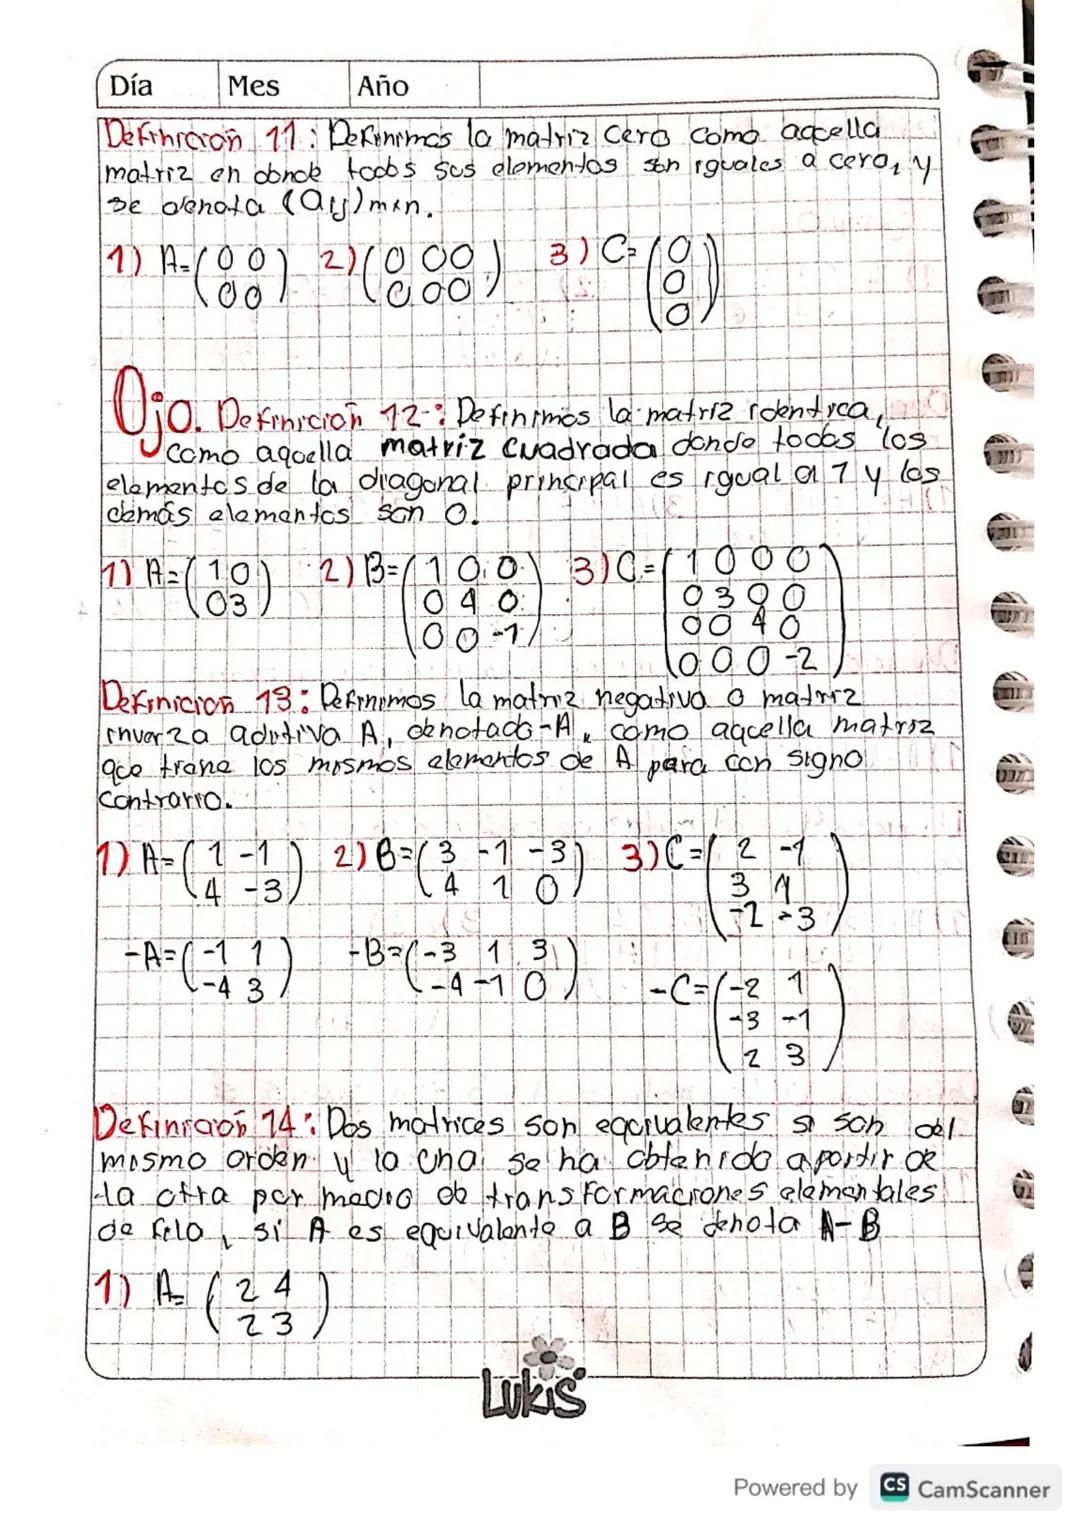 Día Mes Año
Definición 11: Definimos la matriz cero como aqcella
matriz en donde todos sus elementos son iguales a cero, y
se denota (aij)mxn.
1) A=(0 0 2)(0 0 0 3) C=(0
0 0) 0 0 0) 0
0)
Ojo. Definición 12-: Definimos la matriz identica,
como aquella matriz cuadrada donde todos los
elementos de la diagonal principal es igual a 1 y los
demás elementos son 0.
1) A=(1 0 2) B=(1 0 0 3) C=(1 0 0 0
0 3) 0 4 0 0 3 0 0
0 0 -1) 0 0 4 0
0 0 0 -2)
Definición 13: Definimos la matriz negativa o matriz
inverza aditiva A, denotado -A, como aqcella matriz
que tiene los mismos elementos de A para con signo
contrario.
1) A=(1 -1 2) B=(3 -1 -3 3) C=(2 -1
4 -3) 4 1 0) 3 1
-2 -3)
-A=(-1 1 -B=(-3 1 3
-4 3) -4 -1 0)
-C=(-2 1
-3 -1
2 3)
Definición 14: Dos matrices son eqcivalentes si son del
mismo orden y la una se ha obtenido apartir de
la otra por medio de transformaciones elementales
de fila, si A es equivalente a B se denota A-B
1) A=(2 4
2 3)
Lukis
Powered by CS CamScanner